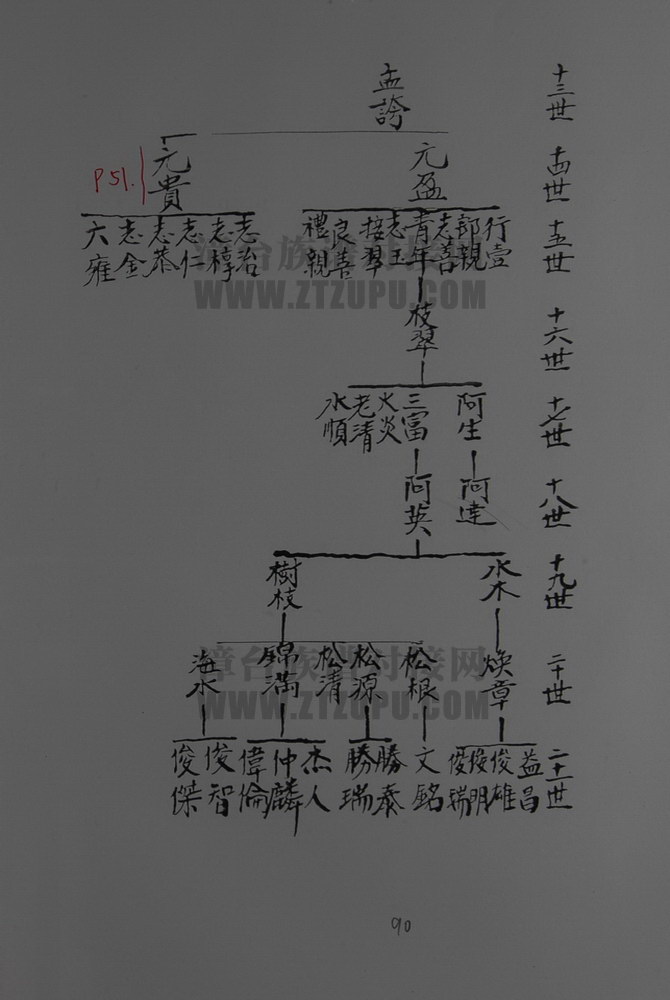 十三世
孟誇
十四世
元盈
元貴
P51.
十五世
行壹
部親
志善
青年
志玉
招翠
良善
禮親
志治
志椁
志仁
志恭
志金
六雍
漳台族谱对接网
WWW.ZTZUPU.COM
十六世
枝翠
十七世
阿生
三富
火炎
老清
水順
十八世
阿達
阿英
十九世
水木
樹枝
二十世
煥章
松根
松源
松清
錦満
海水
漳台族谱对接网
WWW.ZTZUPU.COM
二十一世
益昌
俊雄
俊明
俊瑞
文銘
勝泰
勝瑞
杰人
仲麟
偉倫
俊智
俊傑
90